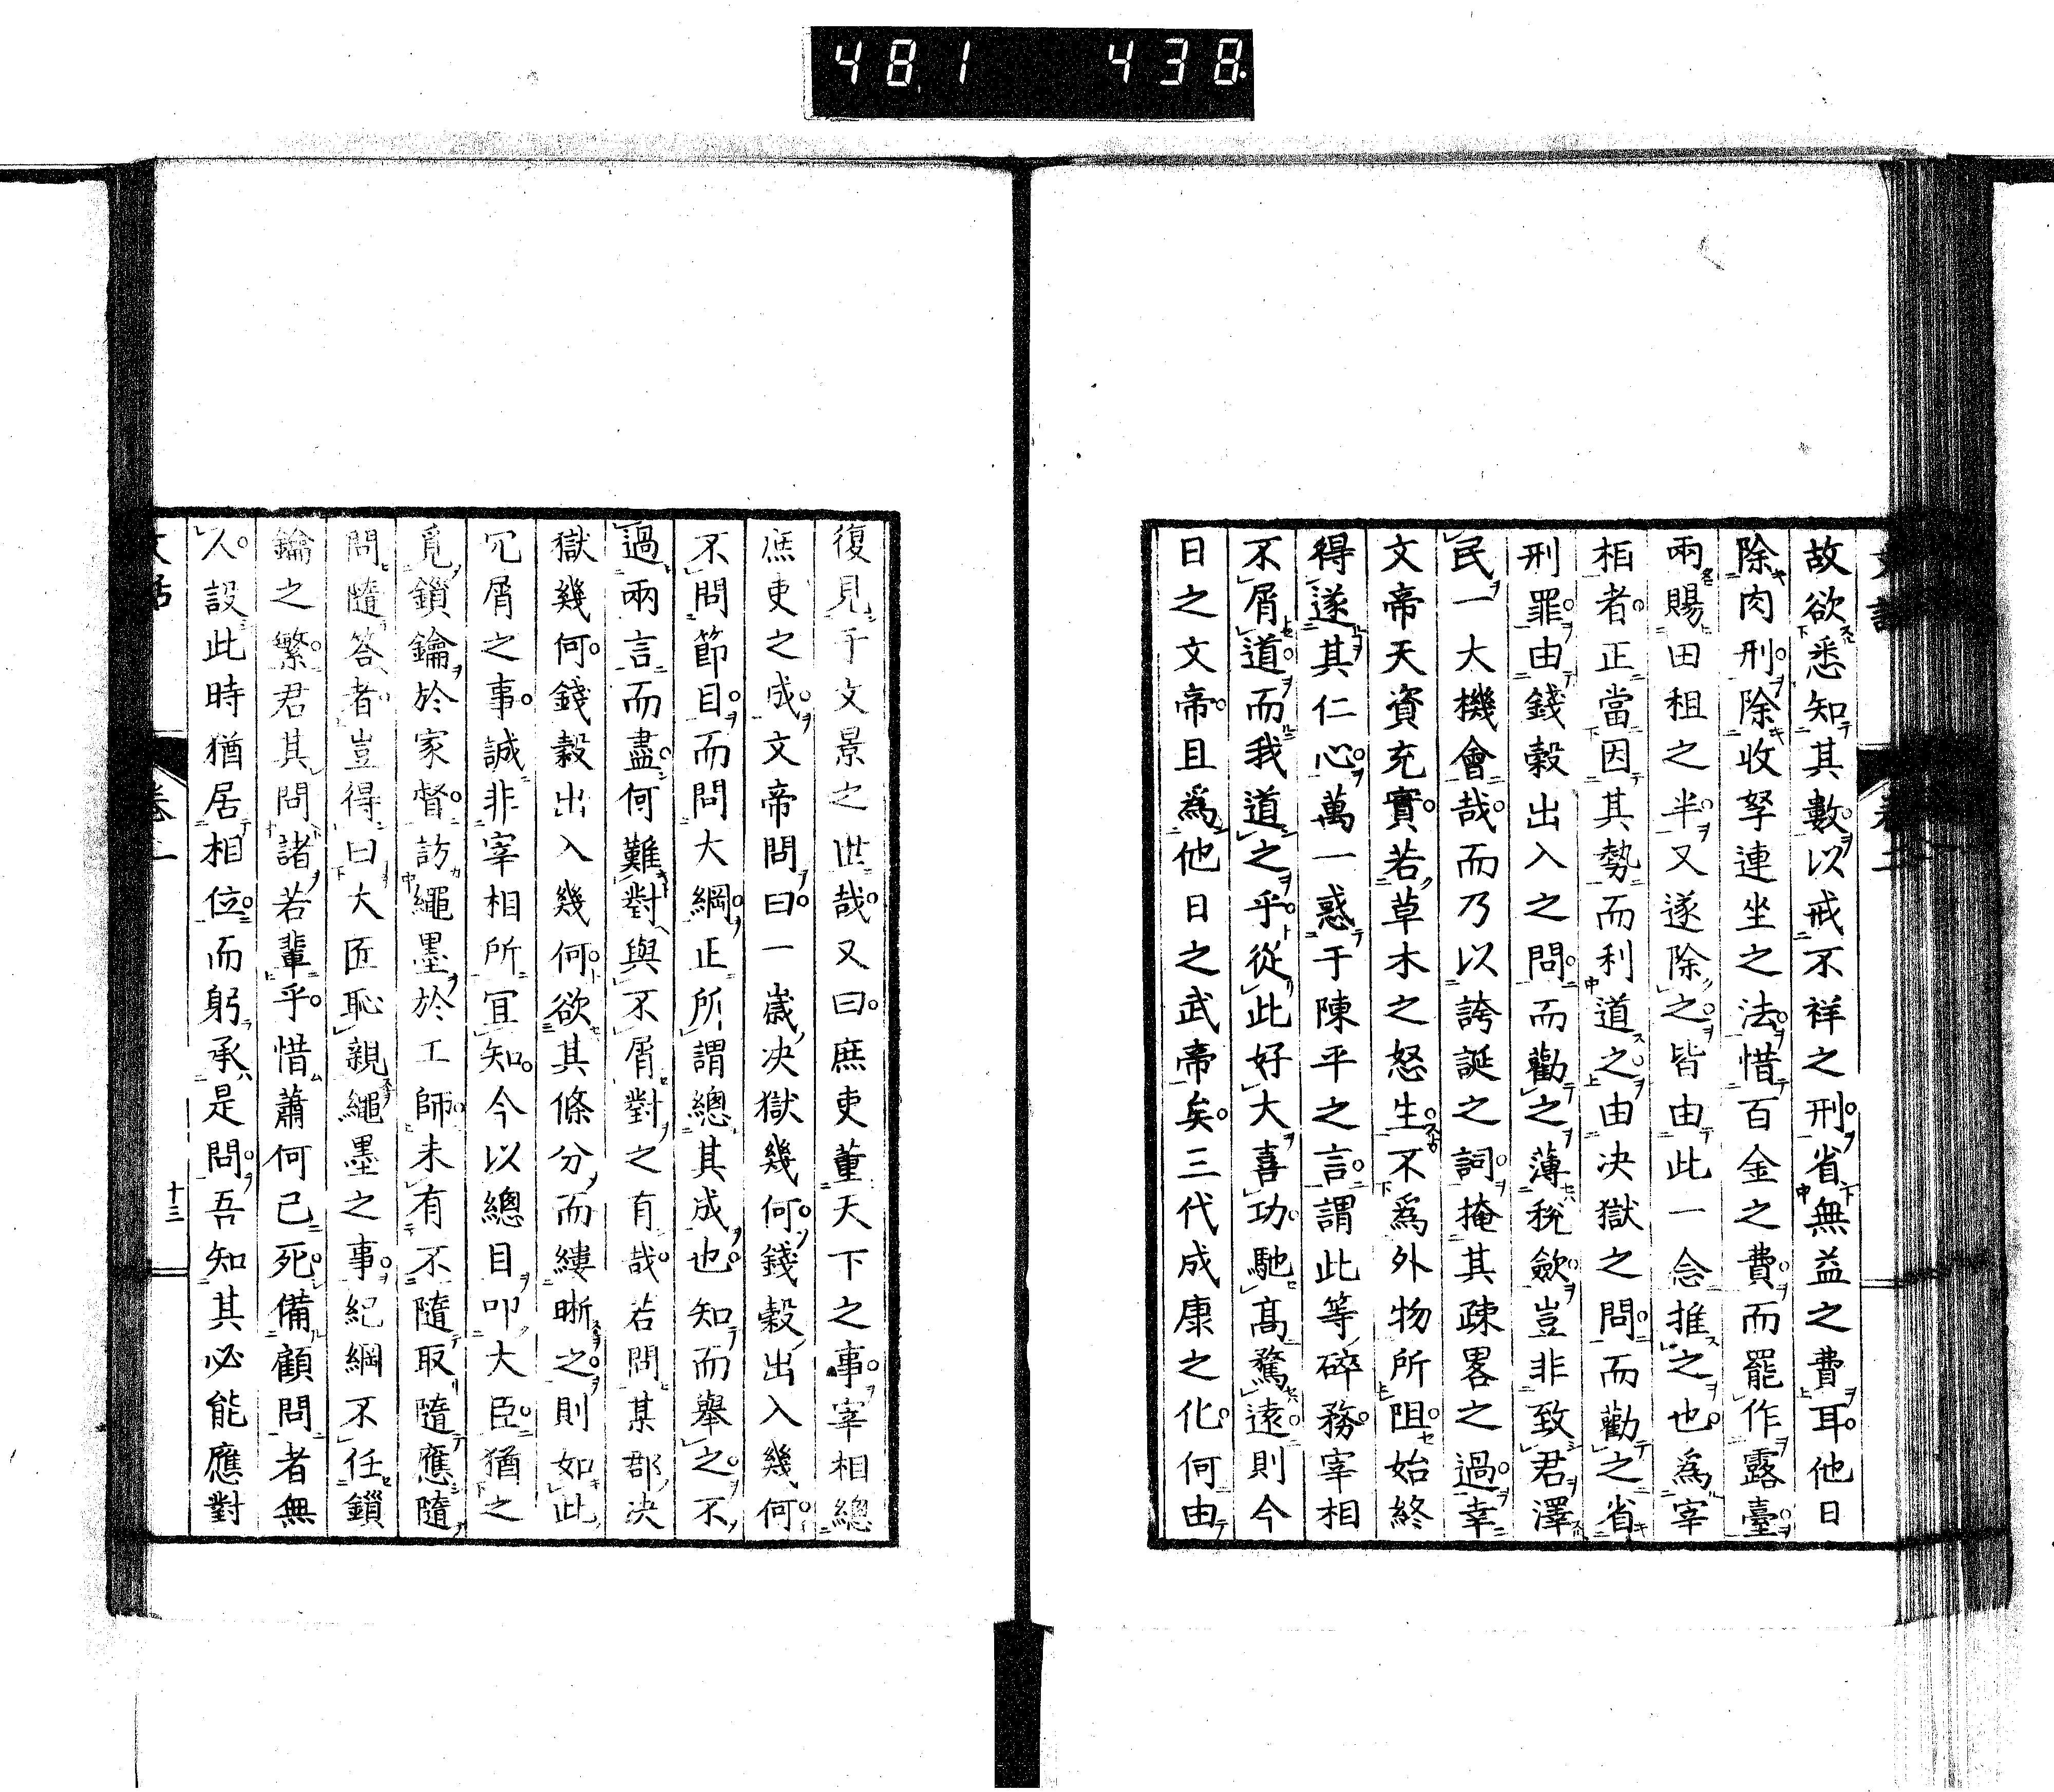 481 438
故欲悉知其數以戒不祥之刑省無益之費耳他日
除肉刑除收孥連坐之法惜百金之費而罷作露臺
兩賜田租之半又遂除之皆由此一念推之也爲宰
相者正當因其勢而利道之由决獄之問而勸之省
刑罪由錢穀出入之問而勸之薄稅斂豈非致君澤
民一大機會哉而乃以誇誕之詞掩其疎畧之過幸
文帝天資充實若草木之怒生不爲外物所阻始終
得遂其仁心萬一惑于陳平之言謂此等碎務宰相
不屑道而我道之乎從此好大喜功馳高騖遠則今
日之文帝且爲他日之武帝矣三代成康之化何由
復見于文景之世哉又曰庶吏董天下之事宰相總
庶吏之成文帝問曰一歲决獄幾何錢穀出入幾何
不問節目而問大綱正所謂總其成也知而舉之不
過兩言而盡何難對與不屑對之有哉若問某郡决
獄幾何錢穀出入幾何欲其條分而縷晰之則如此
冗屑之事誠非宰相所宜知今以總目叩大臣猶之
覓鎖鑰於家督訪繩墨於工師未有不隨取隨應隨
問隨答者豈得曰大匠恥親繩墨之事紀綱不任鎖
鑰之繁君其問諸若輩乎惜蕭何已死備顧問者無
人設此時猶居相位而躬承是問吾知其必能應對
十三